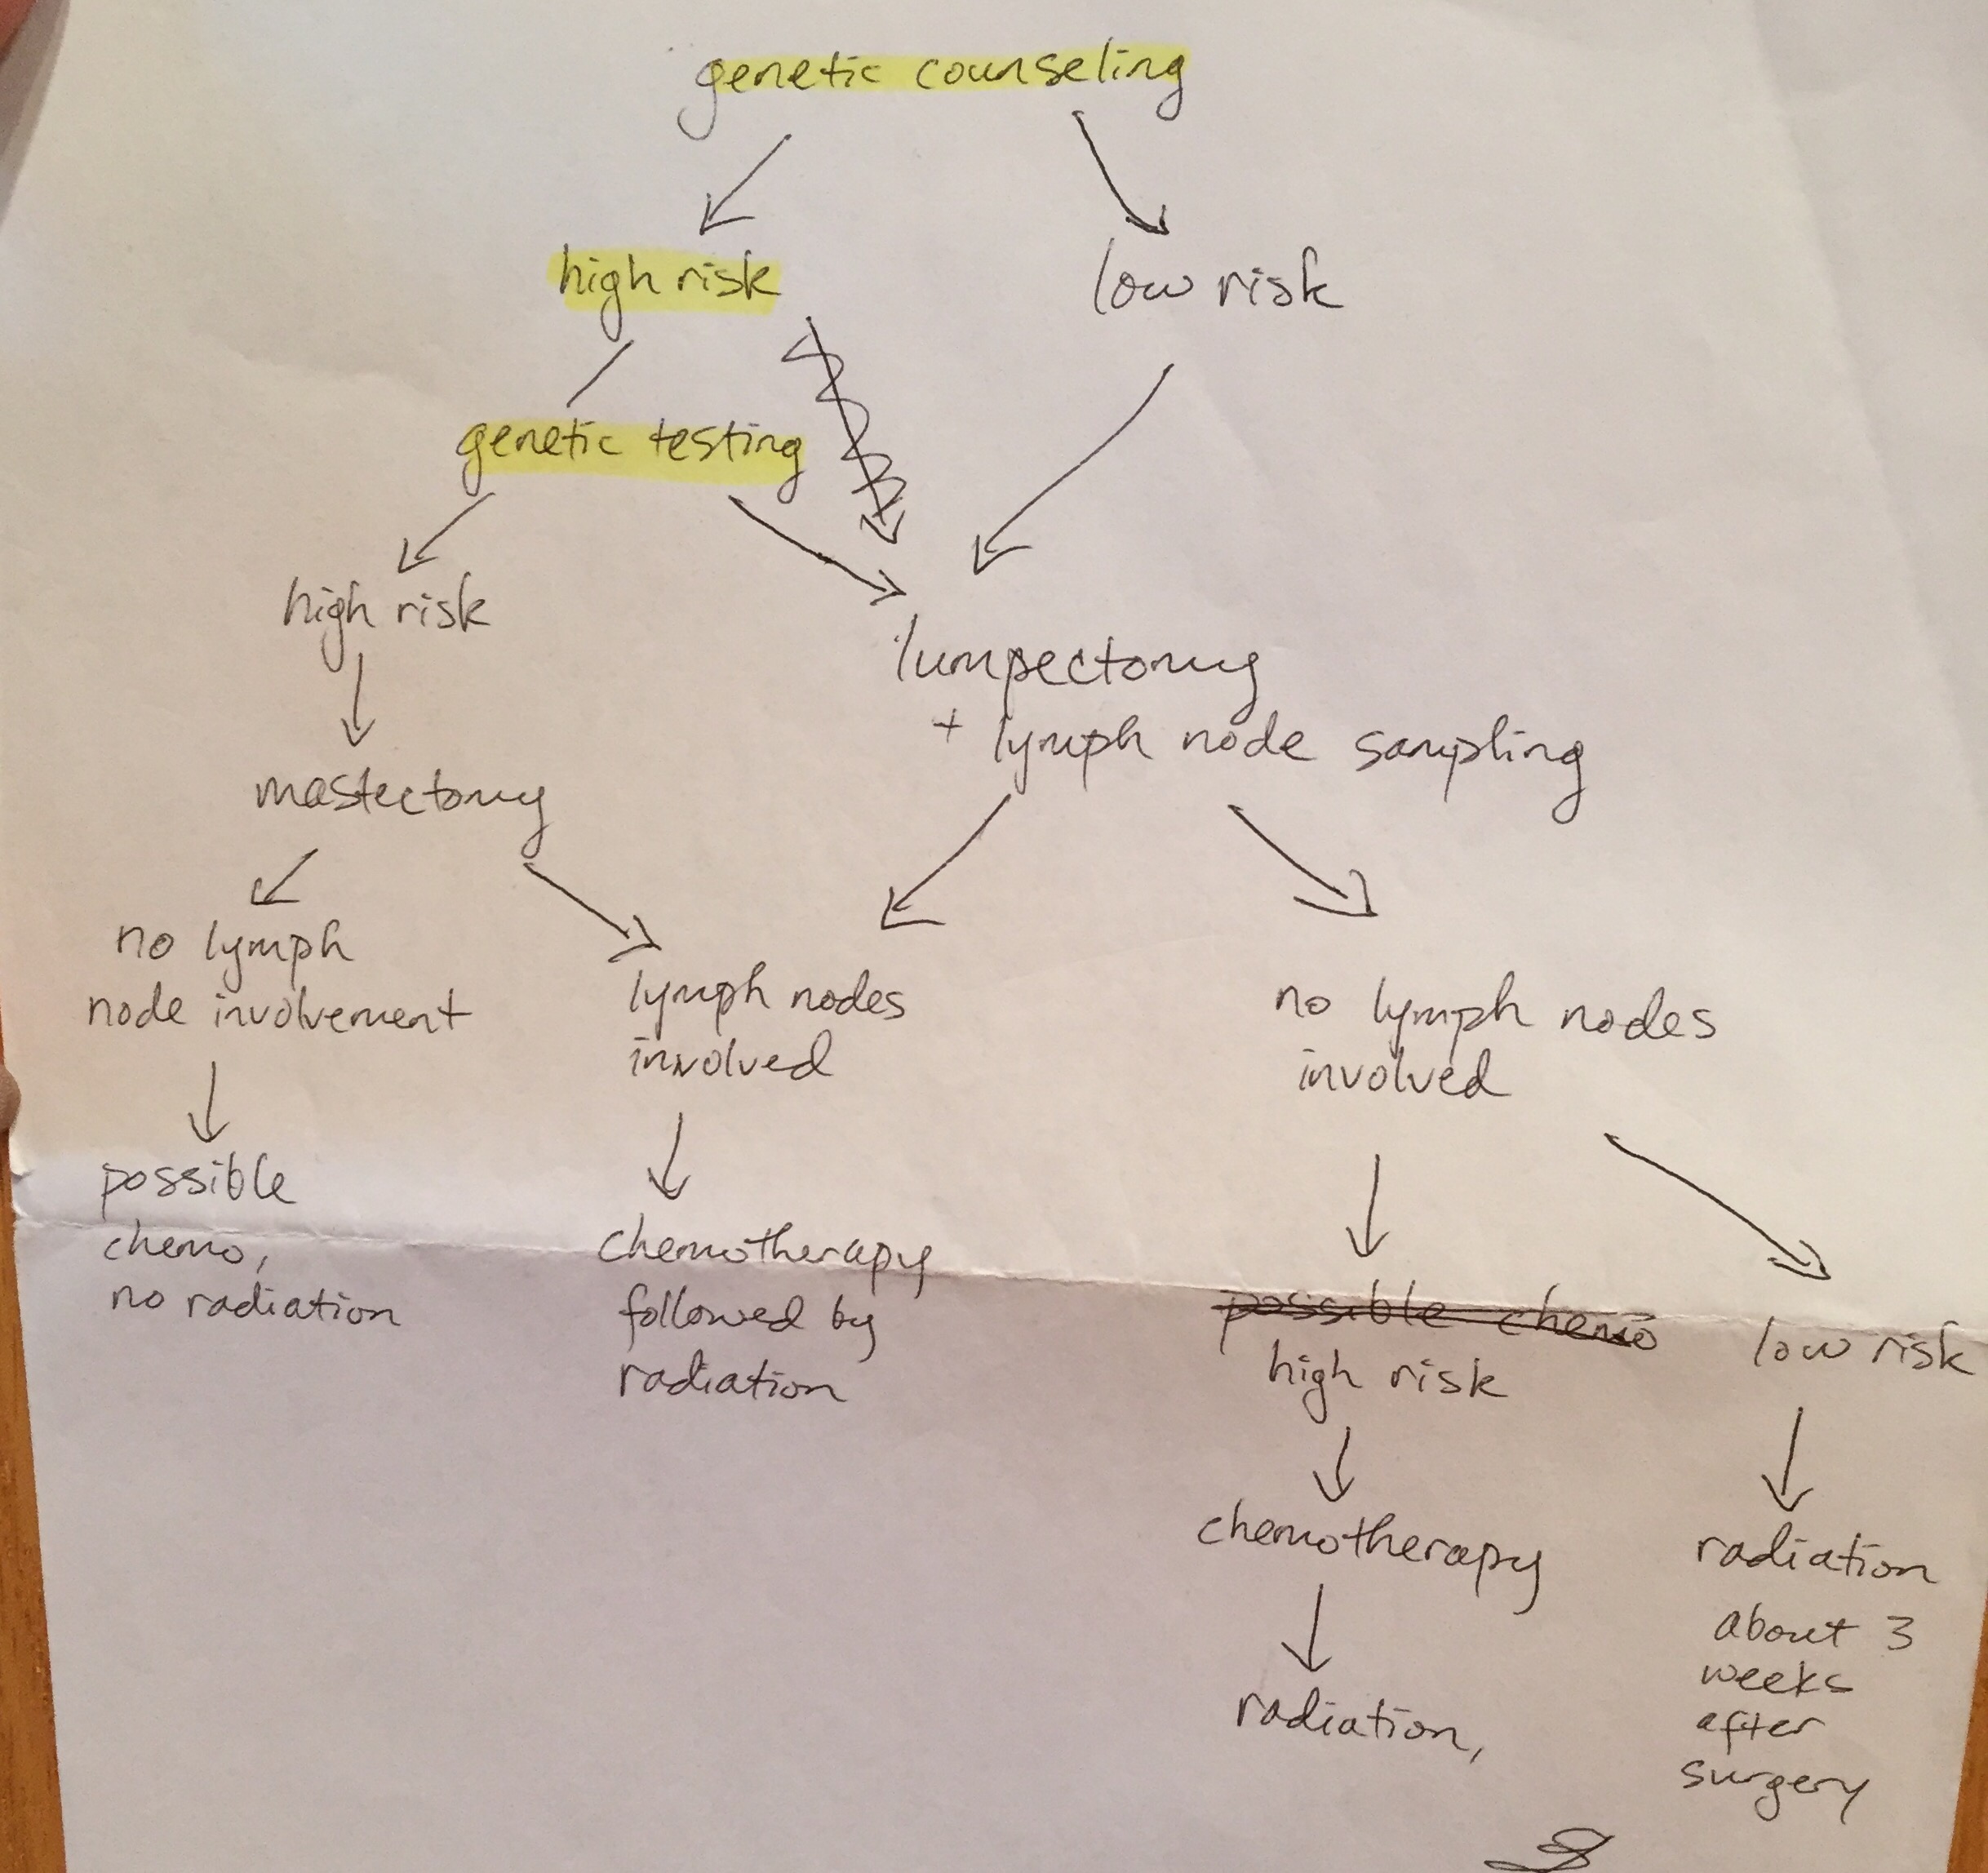 genetic counseling
high risk
low risk
genetic testing
high risk
lumpectomy
+ lymph node sampling
mastectomy
no lymph
node involvement
lymph nodes
involved
no lymph nodes
involved
possible
chemo,
no radiation
chemotherapy
followed by
radiation
possible chemo
high risk
low risk
chemotherapy
radiation
about 3
weeks
after
surgery
radiation,